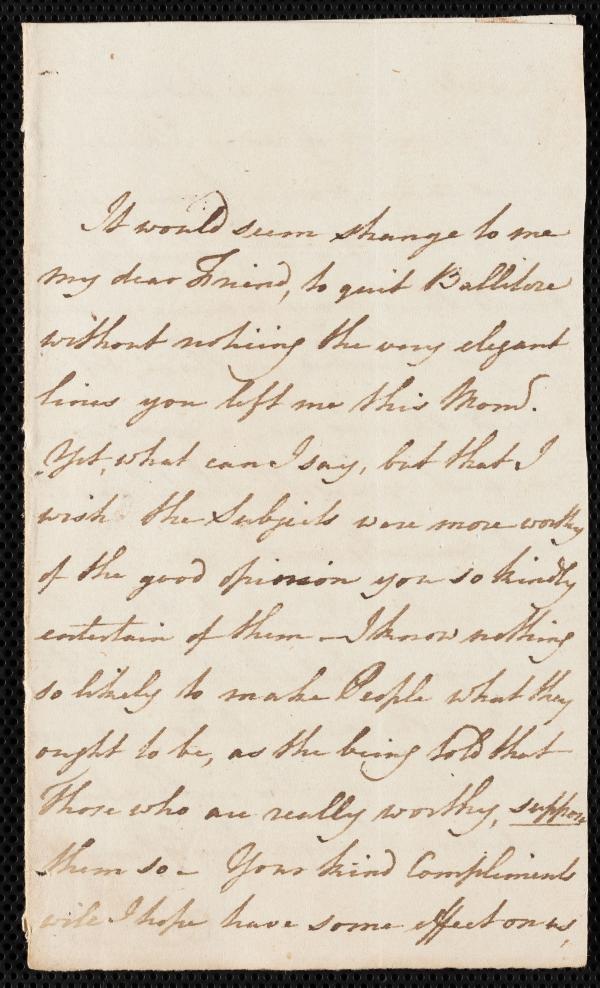 It would seem strange to me
my dear Friend, to quit Ballitore
without noticing the very elegant
lines you left me this Morn.g
Yet, what can I say, but that I
wish the Subjects were more worthy
of the good Opinion you so kindly
entertain of them - I know nothing
so likely to make People what they
ought to be, as the being told that
those who are really worthy, suppose
them so - Your kind Compliments
will I hope have some effect on us,